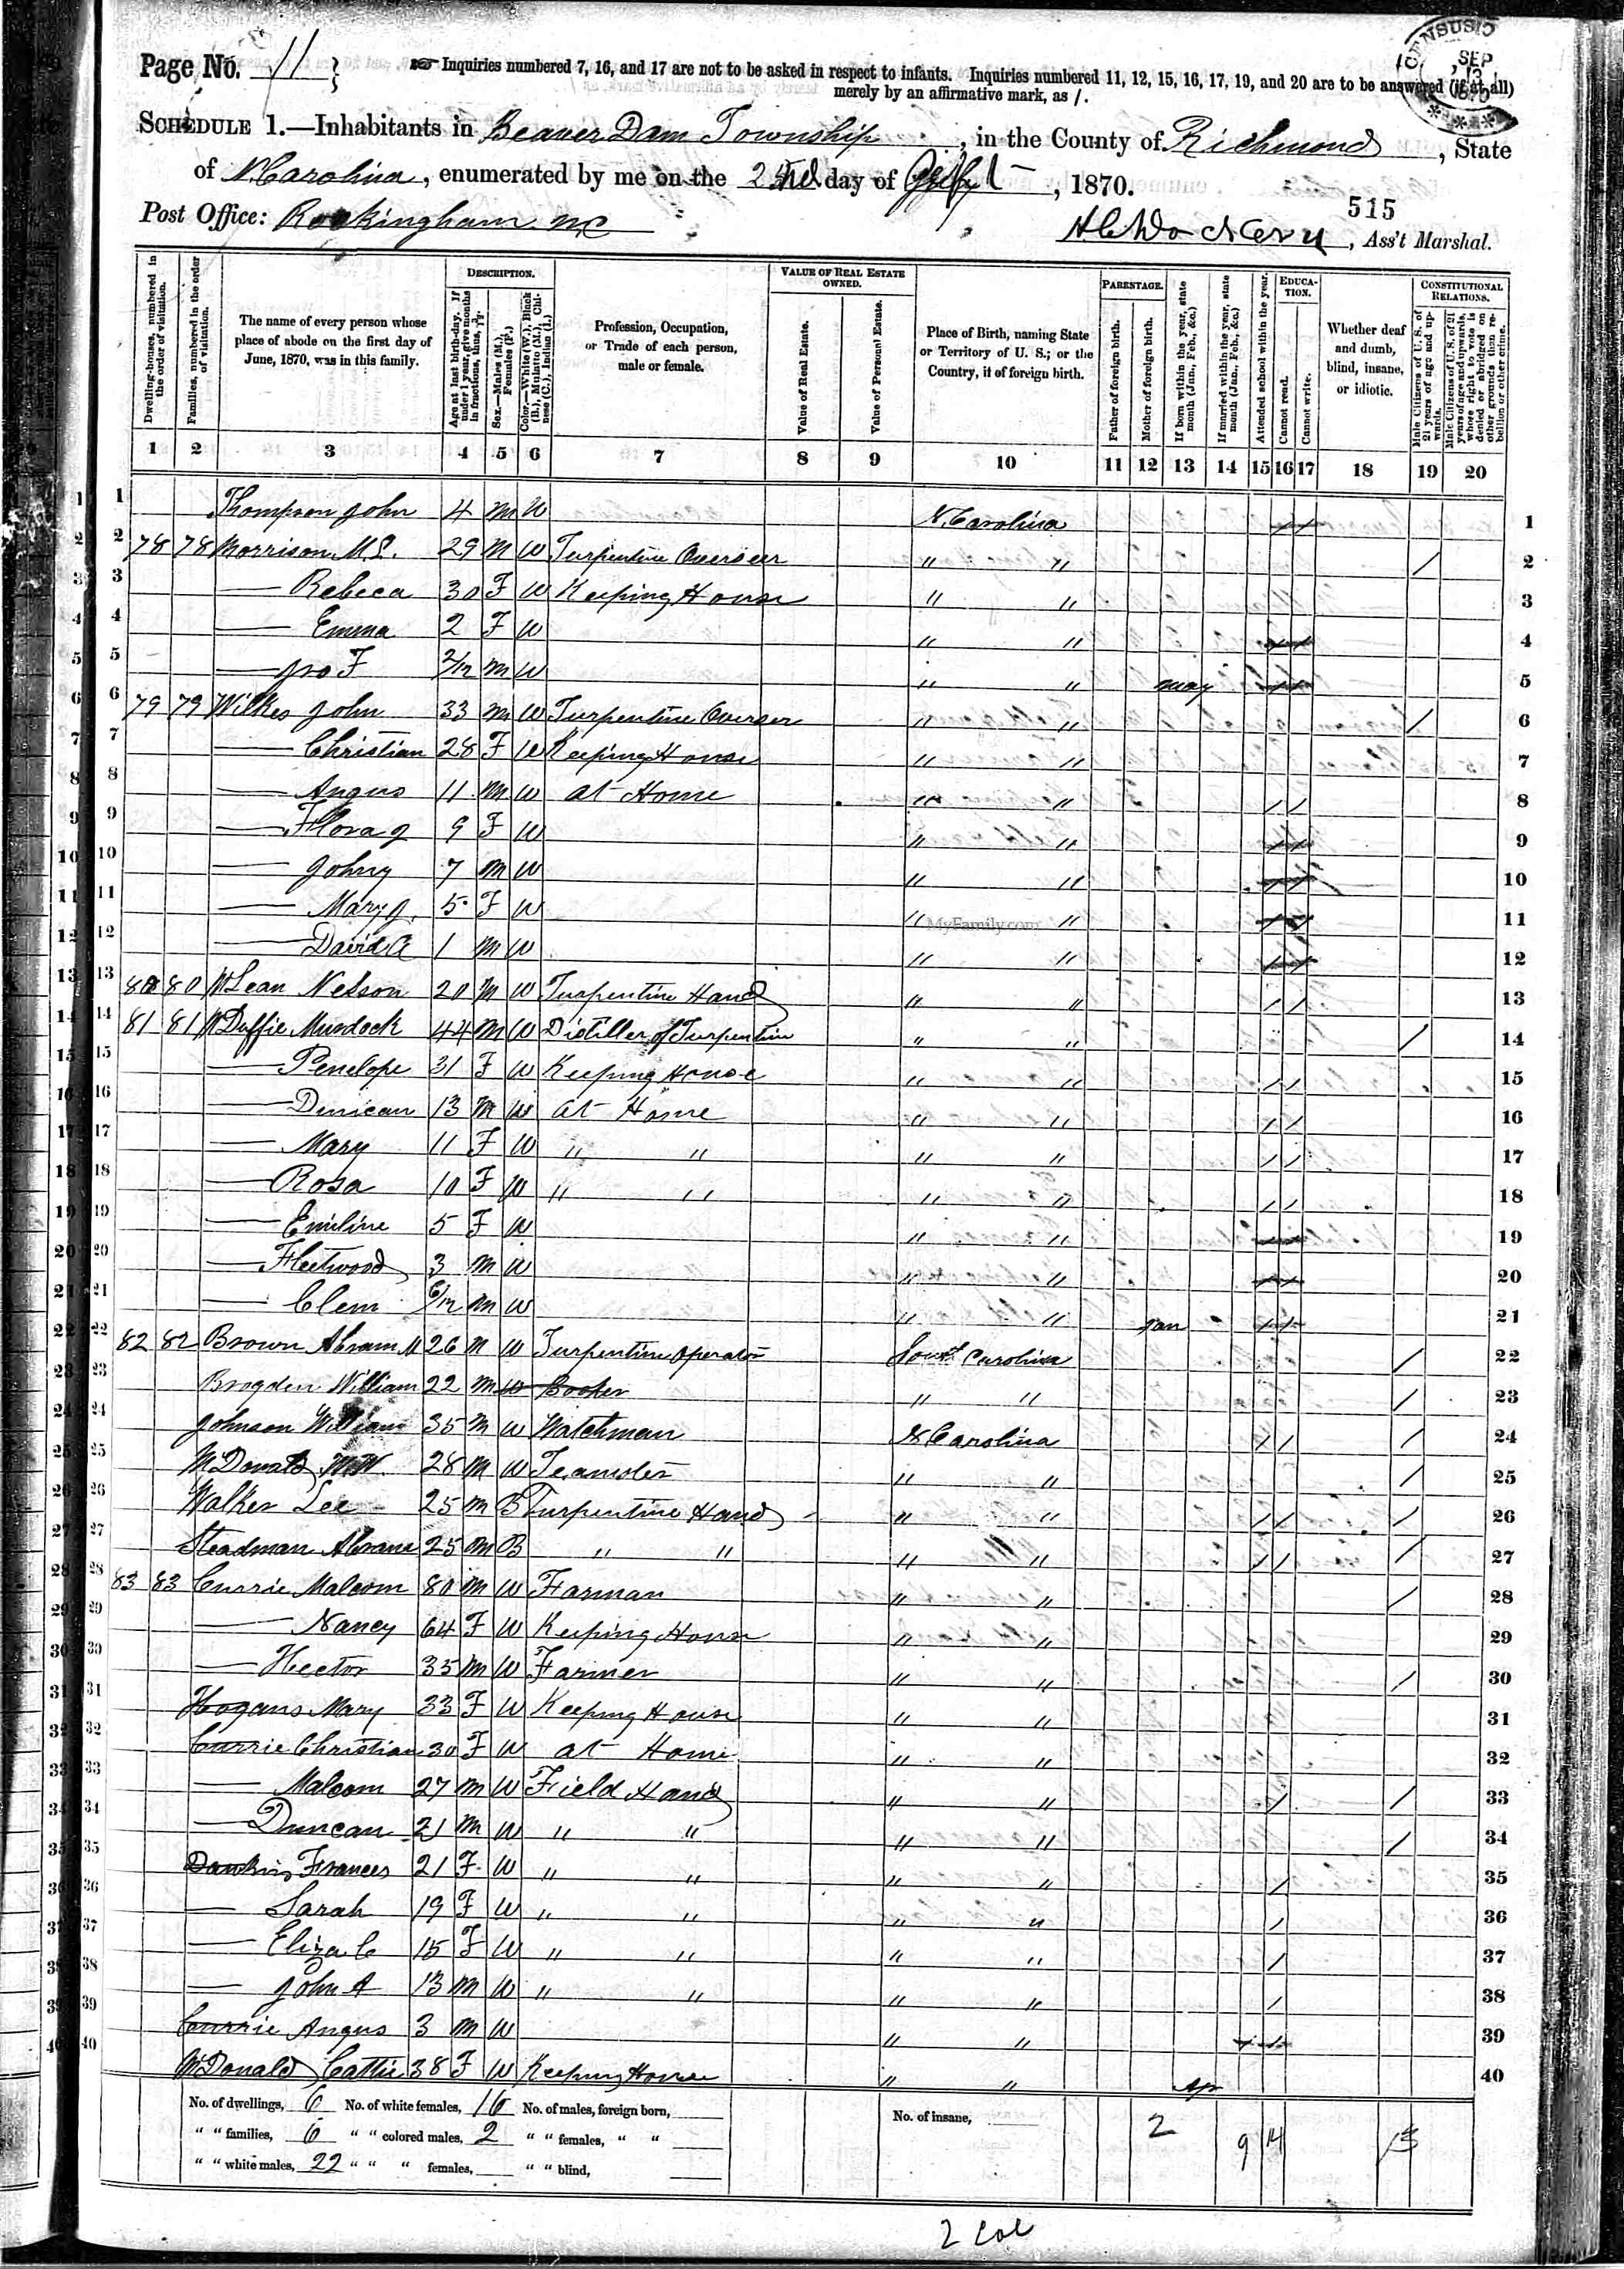 Page No. 11 } ☞ Inquiries numbered 7, 16, and 17 are not to be asked in respect to infants. Inquiries numbered 11, 12, 15, 16, 17, 19, and 20 are to be answered (if at all)
merely by an affirmative mark, as /.
CENSUS
SEP
13
1870
SCHEDULE 1.—Inhabitants in Beaver Dam Township, in the County of Richmond, State
of N. Carolina, enumerated by me on the day of , 1870.
515
Post Office: Rockingham NC , Ass't Marshal.
Dwelling-houses, numbered in the order of visitation.
Families, numbered in the order of visitation.
The name of every person whose place of abode on the first day of June, 1870, was in this family.
DESCRIPTION.
Age at last birth-day. If under 1 year, give months in fractions, thus, 3/12
Sex.—Males (M.), Females (F.)
Color.—White (W.), Black (B.), Mulatto (M.), Chinese (C.), Indian (I.)
Profession, Occupation, or Trade of each person, male or female.
VALUE OF REAL ESTATE OWNED.
Value of Real Estate.
Value of Personal Estate.
Place of Birth, naming State or Territory of U. S.; or the Country, if of foreign birth.
PARENTAGE.
Father of foreign birth.
Mother of foreign birth.
If born within the year, state month (Jan., Feb., &c.)
If married within the year, state month (Jan., Feb., &c.)
Attended school within the year.
EDUCATION.
Cannot read.
Cannot write.
Whether deaf and dumb, blind, insane, or idiotic.
CONSTITUTIONAL RELATIONS.
Male Citizens of U. S. of 21 years of age and upwards.
Male Citizens of U. S. of 21 years of age and upwards, whose right to vote is denied or abridged on other grounds than rebellion or other crime.
1 2 3 4 5 6 7 8 9 10 11 12 13 14 15 16 17 18 19 20
1 Thompson John 4 M W N. Carolina 1
2 78 78 Morrison M. 29 M W Turpentine Overseer " " / 2
3 — Rebeca 30 F W Keeping House " " 3
4 — Emma 2 F W " " 4
5 — Jno F 2/12 M W " " May 5
6 79 79 Wilkes John 33 M W Turpentine Overser " " / 6
7 — Christian 28 F W Keeping House " " 7
8 — Angus 11 M W at Home " " / / 8
9 — Flora J 9 F W " " 9
10 — Johny 7 M W " " 10
11 — Mary J. 5 F W " " 11
MyFamily.com
12 — David A 1 M W " " 12
13 80 80 McLean Nelson 20 M W Turpentine Hand " " / / 13
14 81 81 McDuffie Murdock 44 M W Distiller of Turpentine " " / 14
15 — Penelope 31 F W Keeping House " " / / 15
16 — Duncan 13 M W at Home " " / / 16
17 — Mary 11 F W " " " " / / 17
18 — Rosa 10 F W " " " " / / 18
19 — Emiline 5 F W " " 19
20 — Fleetwood 3 M W " " 20
21 — Clem 6/12 M W " " Jan 21
22 82 82 Brown Abram M 26 M W Turpentine Operator South Carolina / 22
23 Brogden William 22 M W Cooper " " / 23
24 Johnson William 35 M W Watchman N Carolina / / / 24
25 McDonald 28 M W Teamster " " / 25
26 Walker Lee 25 M B Turpentine Hand " " / / / 26
27 Steadman Abram 25 M B " " " " / / / 27
28 83 83 Currie Malcom 80 M W Farman " " / 28
29 — Nancy 64 F W Keeping House " " 29
30 — Hector 35 M W Farmer " " / 30
31 Hogans Mary 33 F W Keeping House " " 31
32 Currie Christian 30 F W at Home " " 32
33 — Malcom 27 M W Field Hand " " / / 33
34 — Duncan 21 M W " " " " / 34
35 Dawkins Frances 21 F W " " " " / 35
36 — Sarah 19 F W " " " " / 36
37 — Eliza C 15 F W " " " " / 37
38 — John A 13 M W " " " " / 38
39 Currie Angus 3 M W " " 39
40 McDonald Cattie 38 F W Keeping House " " 40
No. of dwellings, 6 No. of white females, 16 No. of males, foreign born, No. of insane, 2 9 14
" " families, 6 " " colored males, 2 " " females, " "
" " white males, 22 " " " females, " " blind,
2 Col